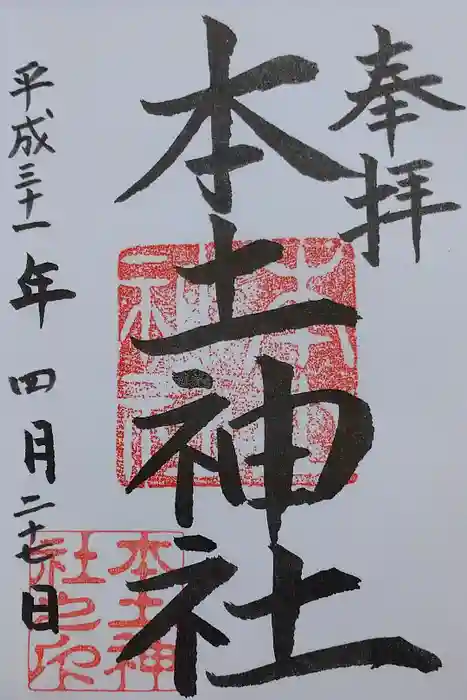 奉拝
本土神社
平成三十一年四月二十七日
本土神社
本土神社之印